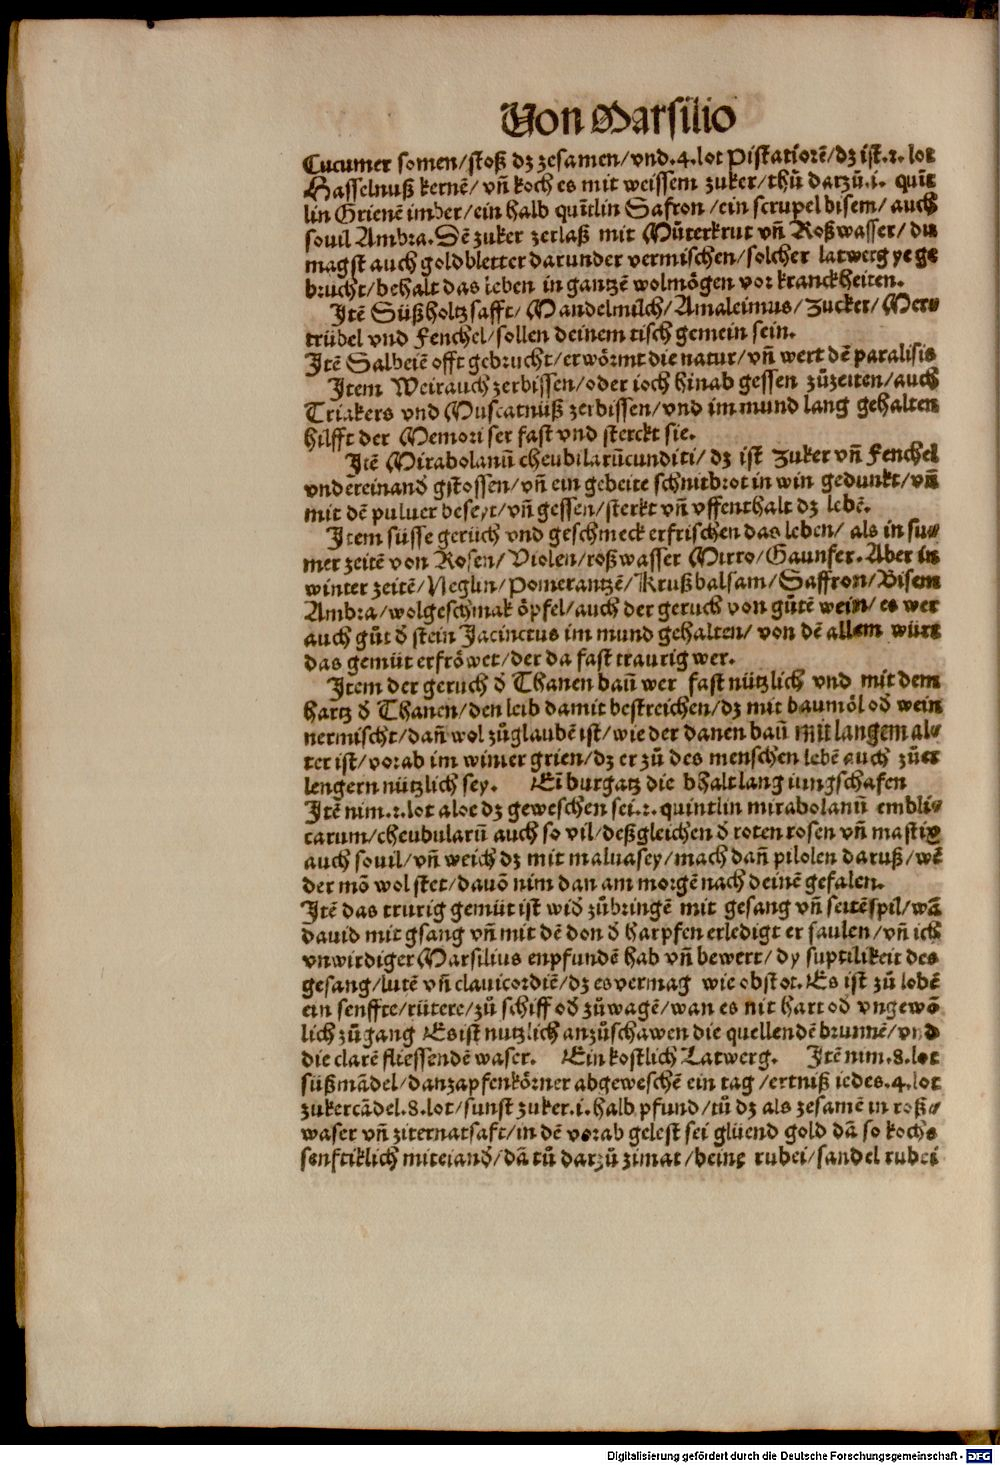 Von Marsilio
Cucumer somen/stoß dz zesamen/vnd.4.lot Pistatiorē/dz ist.2.lot
Hasselnuß kernē/vñ koch es mit weissem zuker/thů darzů.i. quīt
lin Grienē imber/ein halb quītlin Safron/ein scrupel bisem/auch
souil Ambra. Dē zuker zerlaß mit Můterkrut vñ Roßwasser/du
magst auch goldbletter darunder vermischen/solcher latwerg ye ge
brucht/behalt das leben in gantzē wolmögen vor kranckheiten.
Itē Süßholtz safft/Mandelmilch/Amaleimus/Zucker/Mer
trübel vnd Fenchel/sollen deinem tisch gemein sein.
Itē Salbeiē offt gebrucht/erwörmt die natur/vñ wert dē paralisis
Item Weirauch zerbissen/oder ioch hinab gessen zůzeiten/auch
Triakers vnd Muscatnüß zerbissen/vnd im mund lang gehalten
hilfft der Memori ser fast vnd sterckt sie.
Itē Mirabolanū cheubilarūcunditi/dz ist Zuker vñ Fenchel
vndereinand gstossen/vñ ein gebeite schnitbrot in win gedunkt/vñ
mit dē puluer beseyt/vñ gessen/sterkt vñ vffenthalt dz lebē.
Item süsse gerüch vnd geschmeck erfrischen das leben/als in su⸗
mer zeitē von Rosen/Violen/roßwasser Mirro/Gaunfer. Aber in
winter zeitē/Neglin/Pomerantzē/Krußbalsam/Saffron/Bisem
Ambra/wolgeschmak öpfel/auch der geruch von gůtē wein/es wer
auch gůt đ stein Jacinctus im mund gehalten/von dē allem würt
das gemüt erfröwet/der da fast traurig wer.
Item der geruch đ Thanen baū wer fast nützlich vnd mit dem
hartz đ Thanen/den leib damit bestreichen/dz mit baumöl ođ wein
nermischt/dañ wol zůglaubē ist/wie der danen baū mit langem al⸗
ter ist/vorab im winter grien/dz er zů des menschen lebē auch zůer
lengern nützlich sey. Eī burgatz die bhalt lang iungschafen
Itē nim.2.lot aloe dz geweschen sei.2.quintlin mirabolanū embli⸗
carum/cheubularū auch so vil/deßgleichen đ roten rosen vñ mastix
auch souil/vñ weich dz mit maluasey/mach dañ pilolen daruß/wē
der mō wol stet/dauō nim dan am morgē nach deinē gefalen.
Itē das trurig gemüt ist wiđ zůbringē mit gesang vñ seitēspil/wā
dauid mit gsang vñ mit dē don đ harpfen erledigt er saulen/vñ ich
vnwirdiger Marsilius enpfundē hab vñ bewert/dy suptilikeit des
gesang/lutē vñ clauicordiē/dz es vermag wie obstot. Es ist zů lobē
ein senffte/rütere/zů schiff ođ zůwagē/wan es nit hart ođ vngewō
lich zůgang Es ist nutzlich anzůschawen die quellendē brunnē/vnd
die clarē fliessendē waser. Ein kostlich Latwerg. Itē nim.8.lot
süßmādel/danzapfenkörner abgeweschē ein tag/ertniß iedes.4.lot
zukercādel.8.lot/sunst zuker.i.halb pfund/tů dz als zesamē in roß⸗
waser vñ ziternatsaft/in dē vorab gelest sei glüend gold dā so kochs
senftiklich miteianđ/dā tů darzů zimat/beinē rubei/sandel rubei
Digitalisierung gefördert durch die Deutsche Forschungsgemeinschaft - DFG